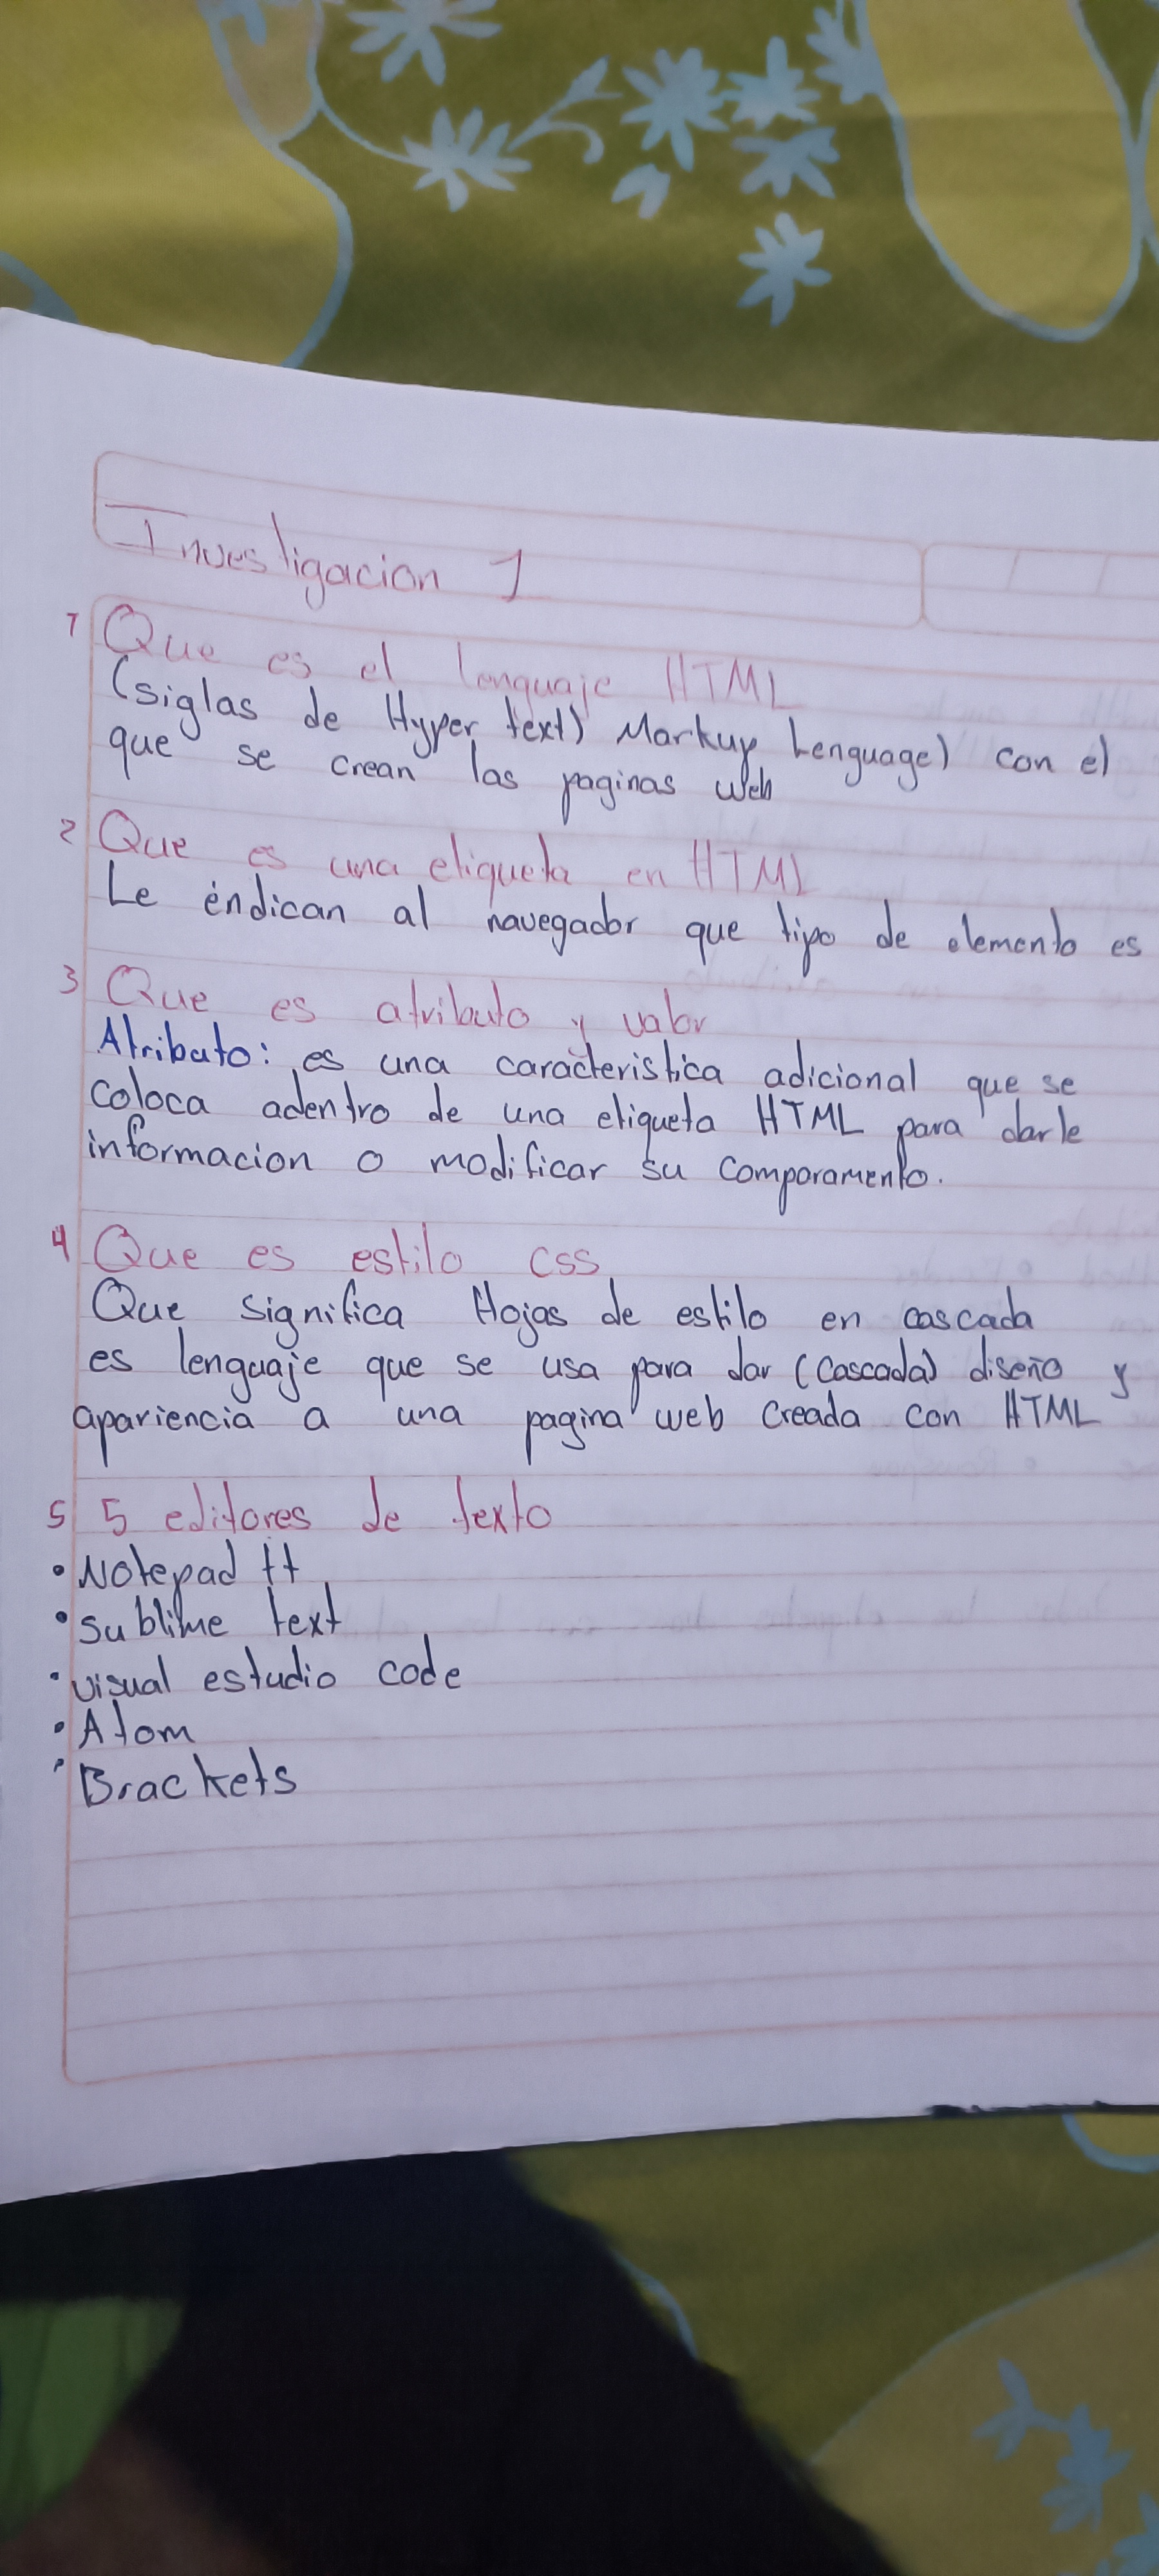 Investigacion 1
1 Que es el lenguaje HTML
(siglas de Hyper text) Markup Lenguage) con el
que se crean las paginas web
2 Que es una etiqueta en HTML
Le endican al navegador que tipo de elemento es
3 Que es atributo y valor
Atributo: es una caracteristica adicional que se
coloca adentro de una etiqueta HTML para darle
informacion o modificar su comporamento.
4 Que es estilo css
Que significa Hojas de estilo en cascada
es lenguaje que se usa para dar (Cascada) diseño y
apariencia a una pagina web creada con HTML
5 5 editores de texto
• Notepad ++
• sublime text
• visual estudio code
• Atom
• Brackets